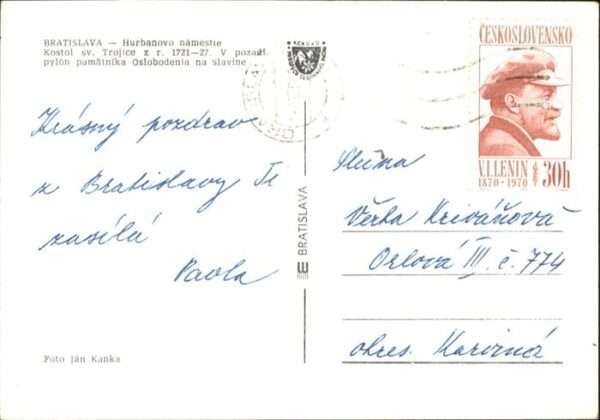 BRATISLAVA — Hurbanovo námestie
Kostol sv. Trojice z r. 1721—27. V pozadí
pylón pamätníka Oslobodenia na slavíne
ČESKOSLOVENSKO
V.I.LENIN
1870-1970
30h
Krásný pozdrav
z Bratislavy Ti
zasílá
Pavla
BRATISLAVA
Slečna
Věrka Kriváňová
Orlová III. č. 774
okres. Karviná
Foto Ján Kanka